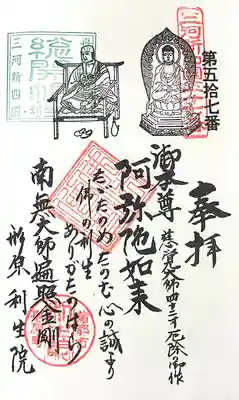 第五拾七番
奉拝
慈覚大師四十二才厄除御作
御本尊
阿弥陀如来
たゞたのめたのむ心の誠より
佛の利生
ありがたのはら
南無大師遍照金剛
形原利生院
三河新四國